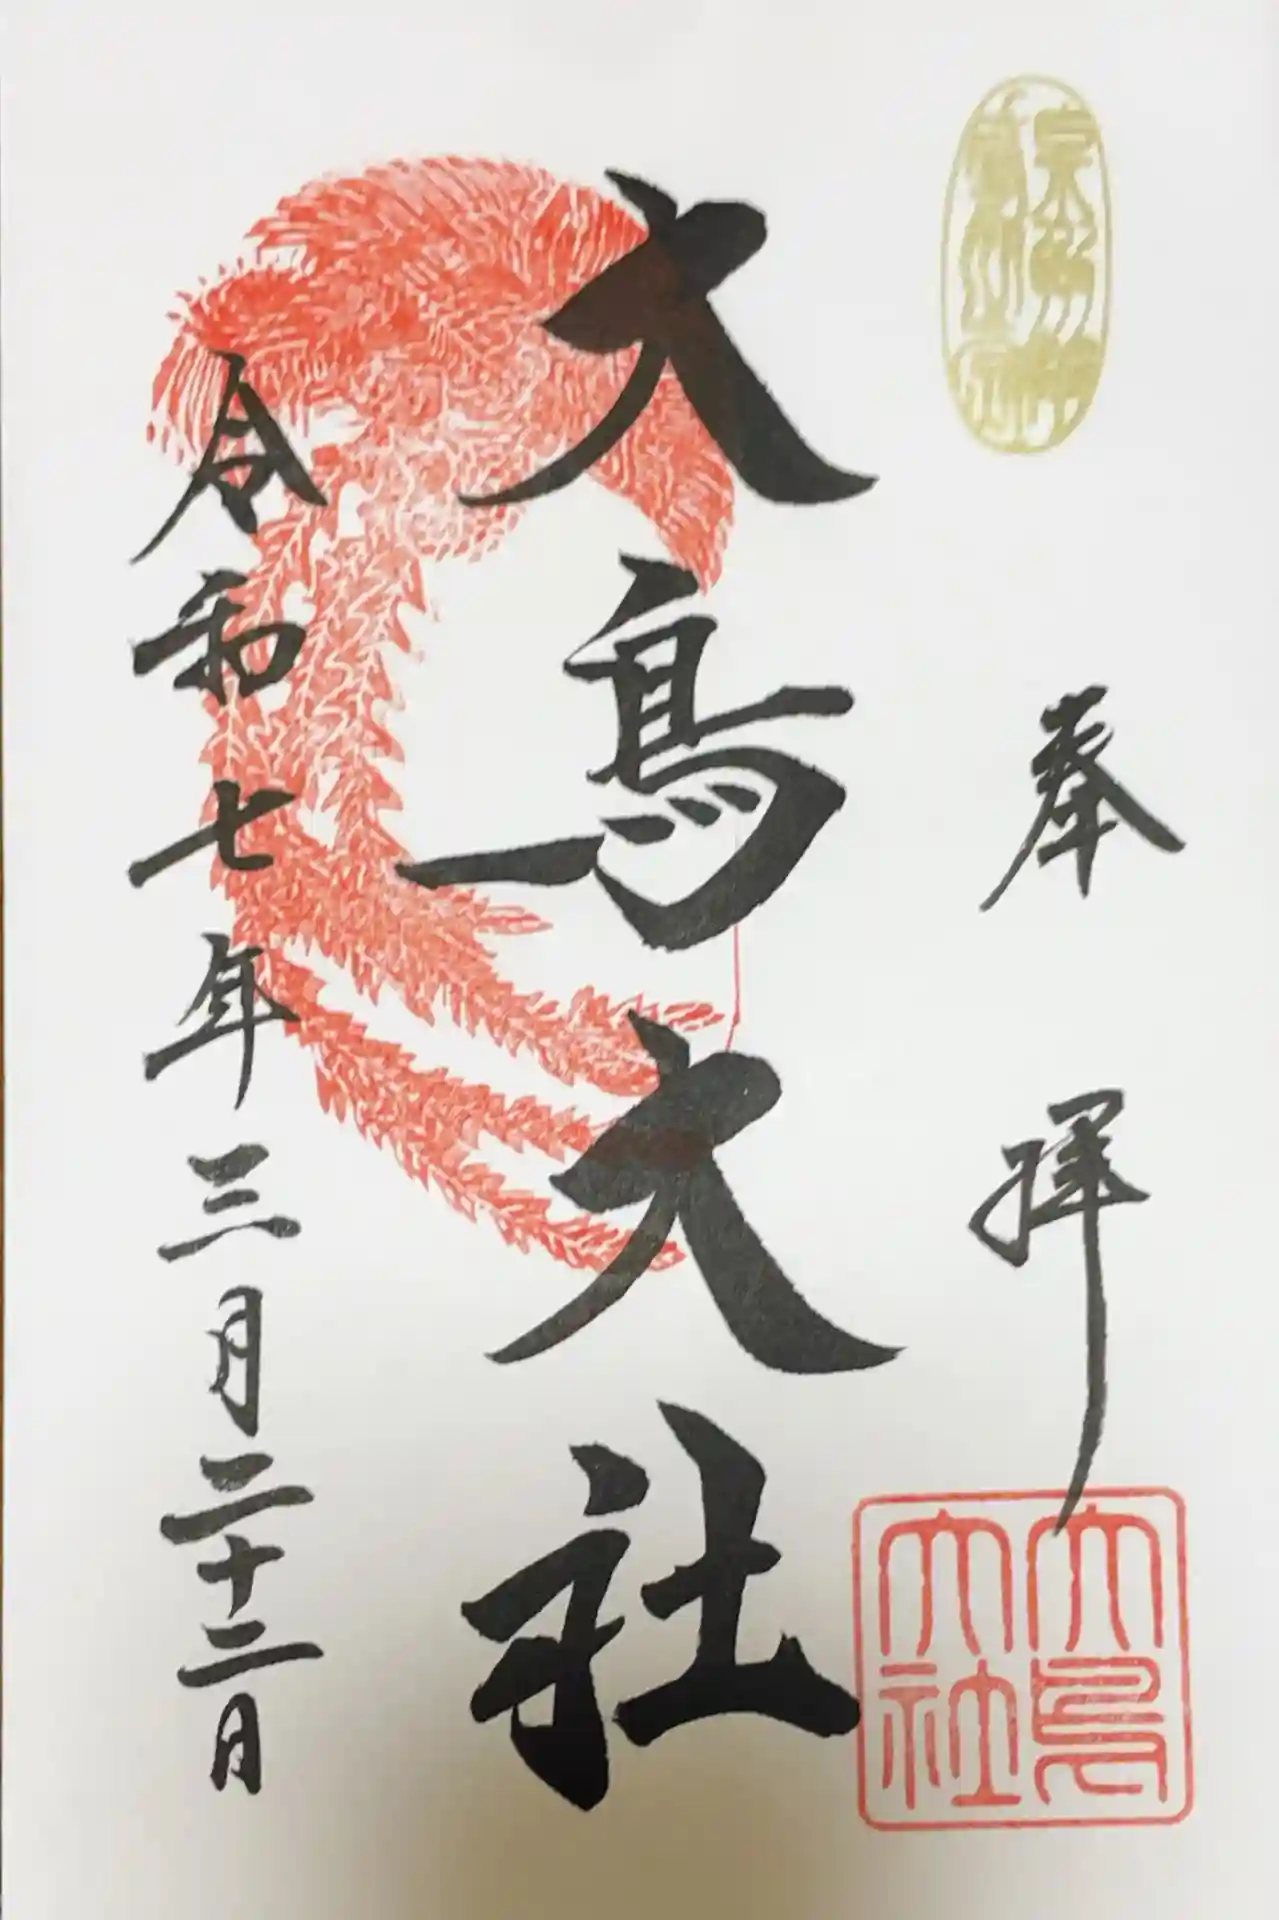 奉拝
大鳥大社
大鳥
大社
令和七年三月二十二日